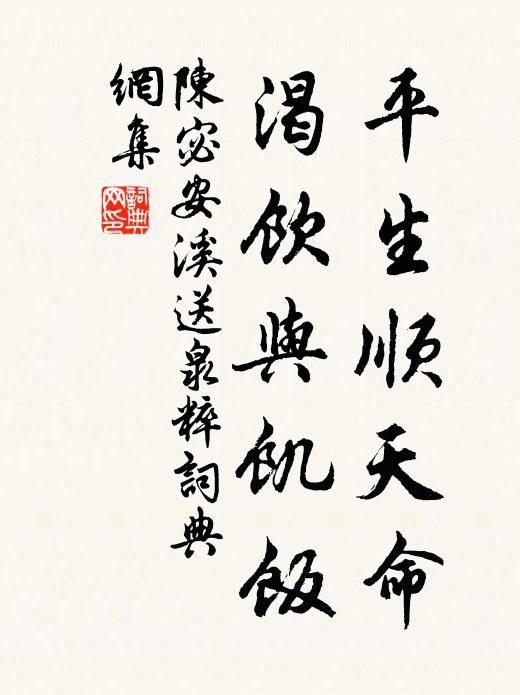 平生順天命
渴飲與飢飯
陳宓安溪送泉粹詞典
網集
詞典網印